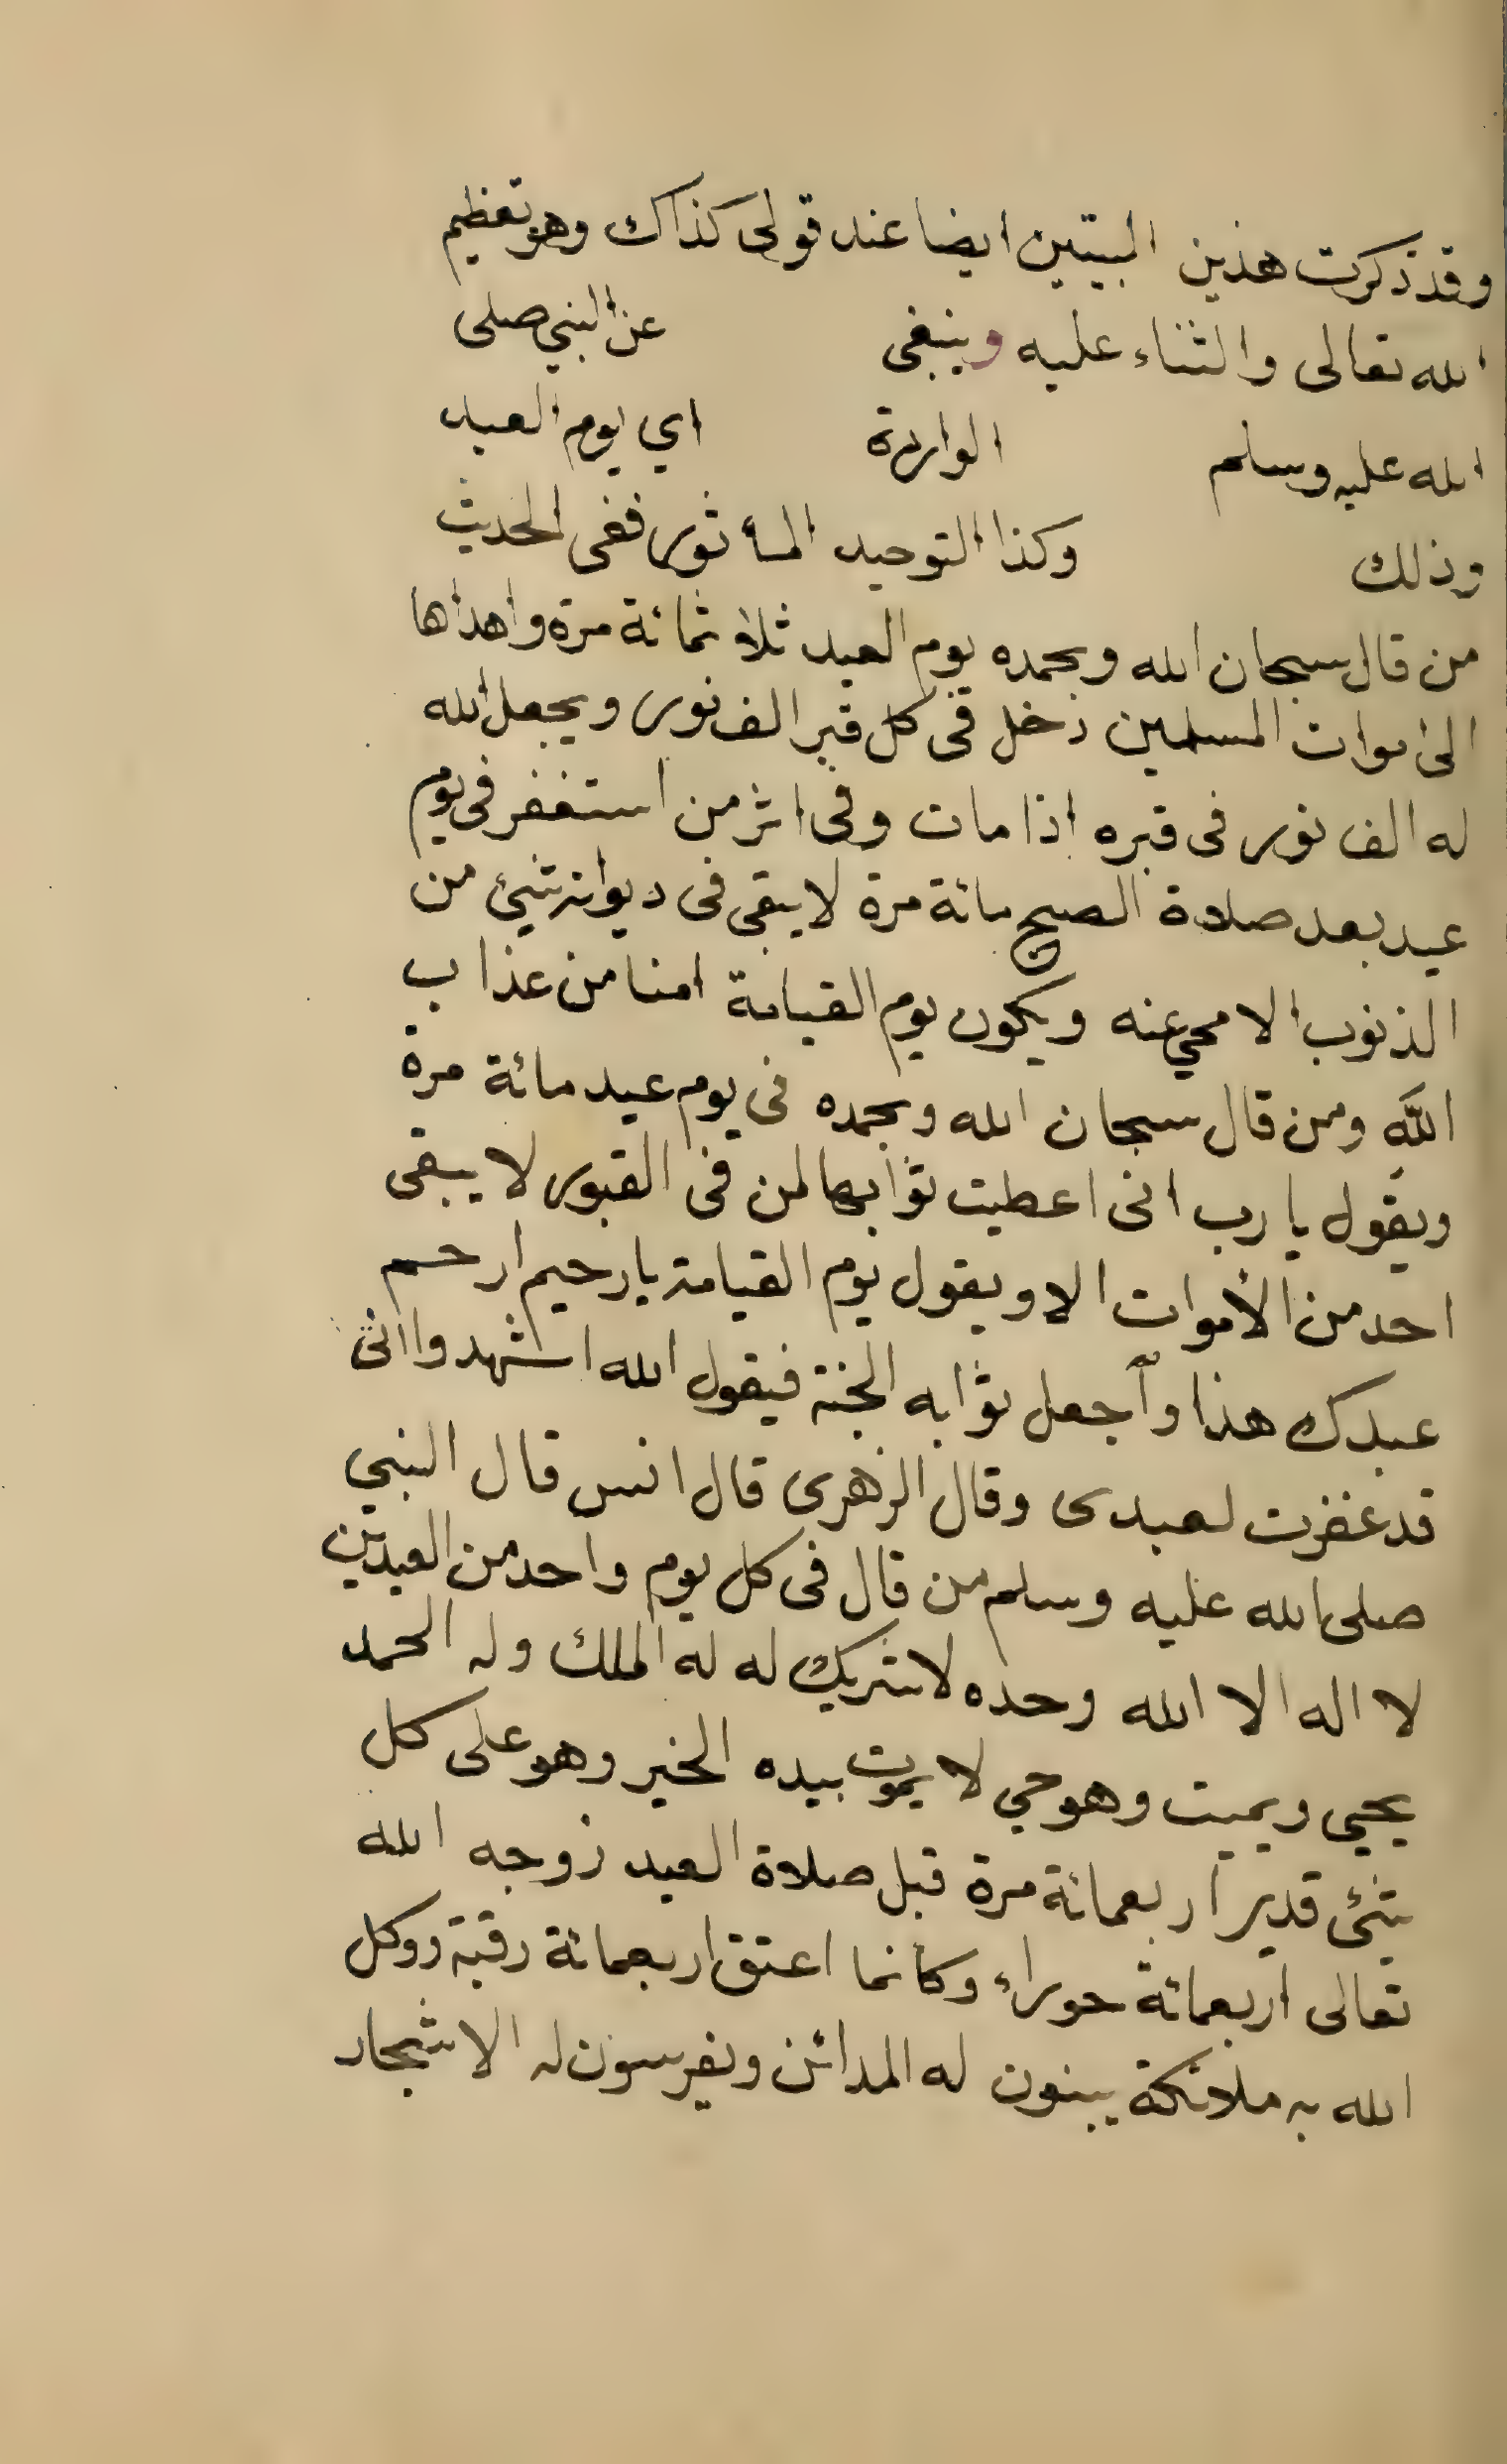 وقد ذكرت هذين البيتين ايضا عند قولى كذاك وهو تعظيم
الله تعالى والثناء عليه وينبغى عن النبي صلى
الله عليه وسلم الواردة اي يوم العيد
وذلك وكذا التوحيد المأثور ففى الحديث
من قال سبحان الله وبحمده يوم العيد ثلاثمائة مرة واهداها
الى اموات المسلمين دخل فى كل قبر الف نور ويجعل الله
له الف نور فى قبره اذا مات وفى اثر من استغفر فى يوم
عيد بعد صلاة الصبح مائة مرة لا يبقى فى ديوانه شيئ من
الذنوب الا محي عنه ويكون يوم القيامة امنا من عذاب
الله ومن قال سبحان الله وبحمده فى يوم عيد مائة مرة
ويقول يا رب انى اعطيت ثوابها لمن فى القبور لا يبقى
احد من الأموات الا ويقول يوم القيامة يا رحيم ارحم
عبدك هذا وأجعل ثوابه الجنة فيقول الله اشهدوا انى
قد غفرت لعبدى وقال الزهرى قال انس قال النبي
صلى الله عليه وسلم من قال فى كل يوم واحد من العيدين
لا اله الا الله وحده لا شريك له له الملك وله الحمد
يحيي ويميت وهو حي لا يموت بيده الخير وهو على كل
شئ قدير اربعمائة مرة قبل صلاة العيد زوجه الله
تعالى اربعمائة حوراء وكانما اعتق اربعمائة رقبة ووكل
الله به ملائكة يبنون له المدائن ويغرسون له الاشجار